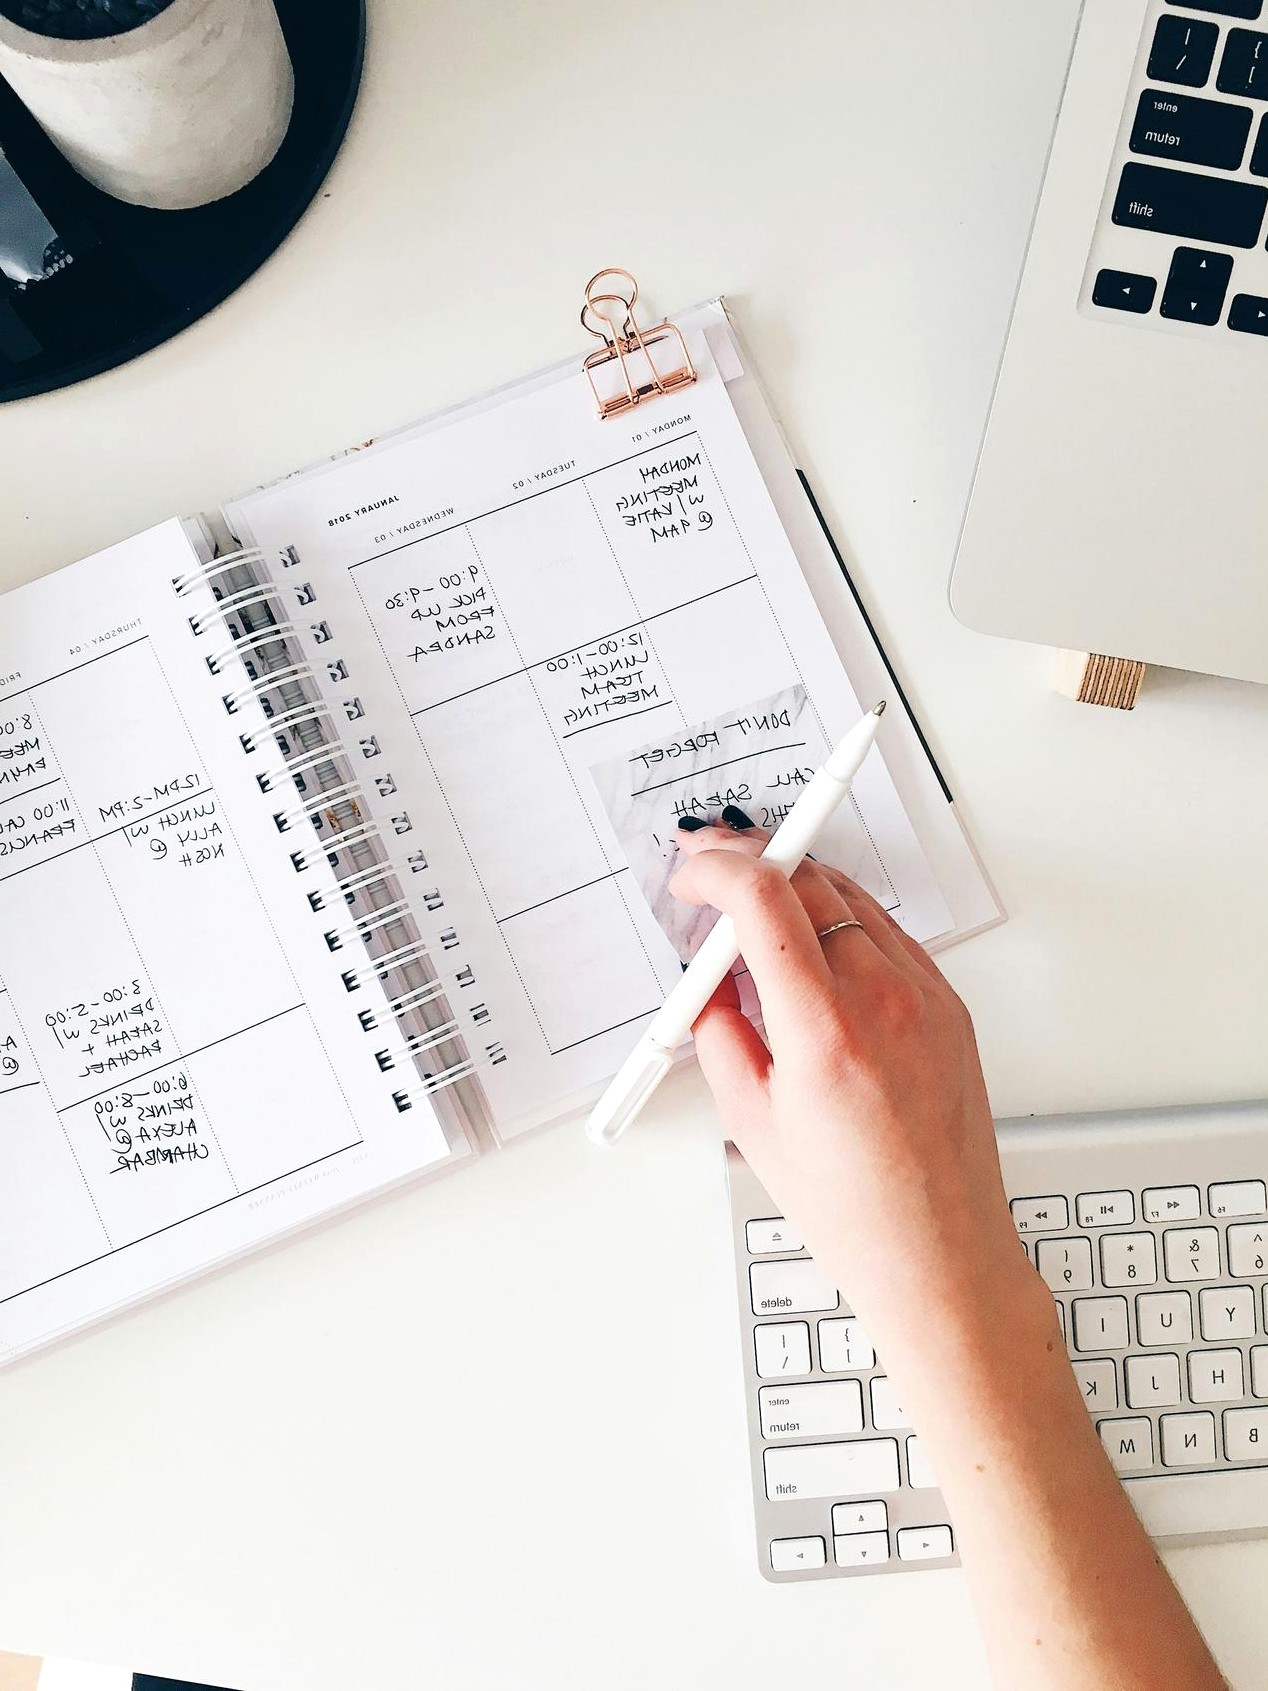 JANUARY 2018
MONDAY / 01
MONDAY
MEETING
W/ KATIE
@ 9AM
TUESDAY / 02
12:00-1:00
LUNCH
TEAM
MEETING
WEDNESDAY / 03
9:00-9:30
PICK UP
FROM
SANDRA
DON'T FORGET
CALL SARAH
THURSDAY / 04
12PM-2:PM
LUNCH W/
ALLY @
NOSH
8:00
11:00
FRANCIS
3:00-5:00
DRINKS W/
SARAH +
RACHAEL
6:00-8:00
DRINKS W/
ALEXA @
CHAMBAR
enter
return
shift
F9
F8
F7
F6
(
9
*
8
&
7
^
6
delete
I
U
Y
|
\
}
]
K
J
H
enter
return
M
N
B
shift